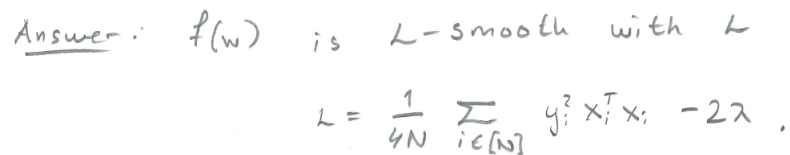 Answer: f(w) is L-smooth with L
L = 1/4N ∑_{i∈[N]} y_i^2 x_i^T x_i - 2λ .